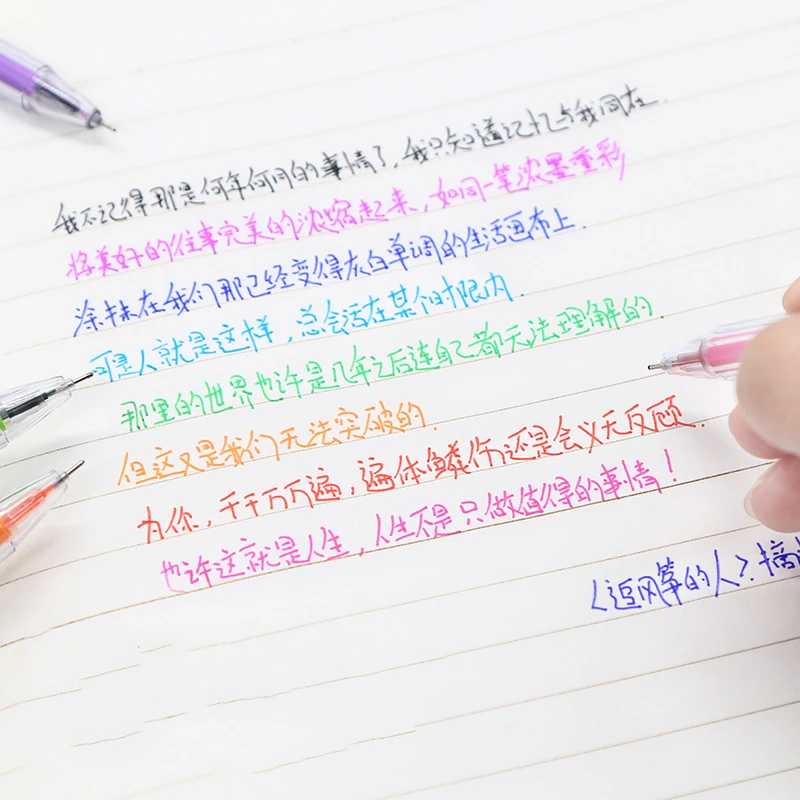 我不记得那是何年何月的事情了，我只知道记忆与我同在.
将美好的往事完美的浓缩起来，如同一笔浓墨重彩
涂抹在我们那已经变得灰白单调的生活画布上.
可是人就是这样，总会活在某个时限内.
那里的世界也许是几年之后连自己都无法理解的.
但这又是我们无法突破的.
为你，千千万万遍，遍体鳞伤还是会义无反顾.
也许这就是人生，人生不是只做值得的事情！
《追风筝的人》摘